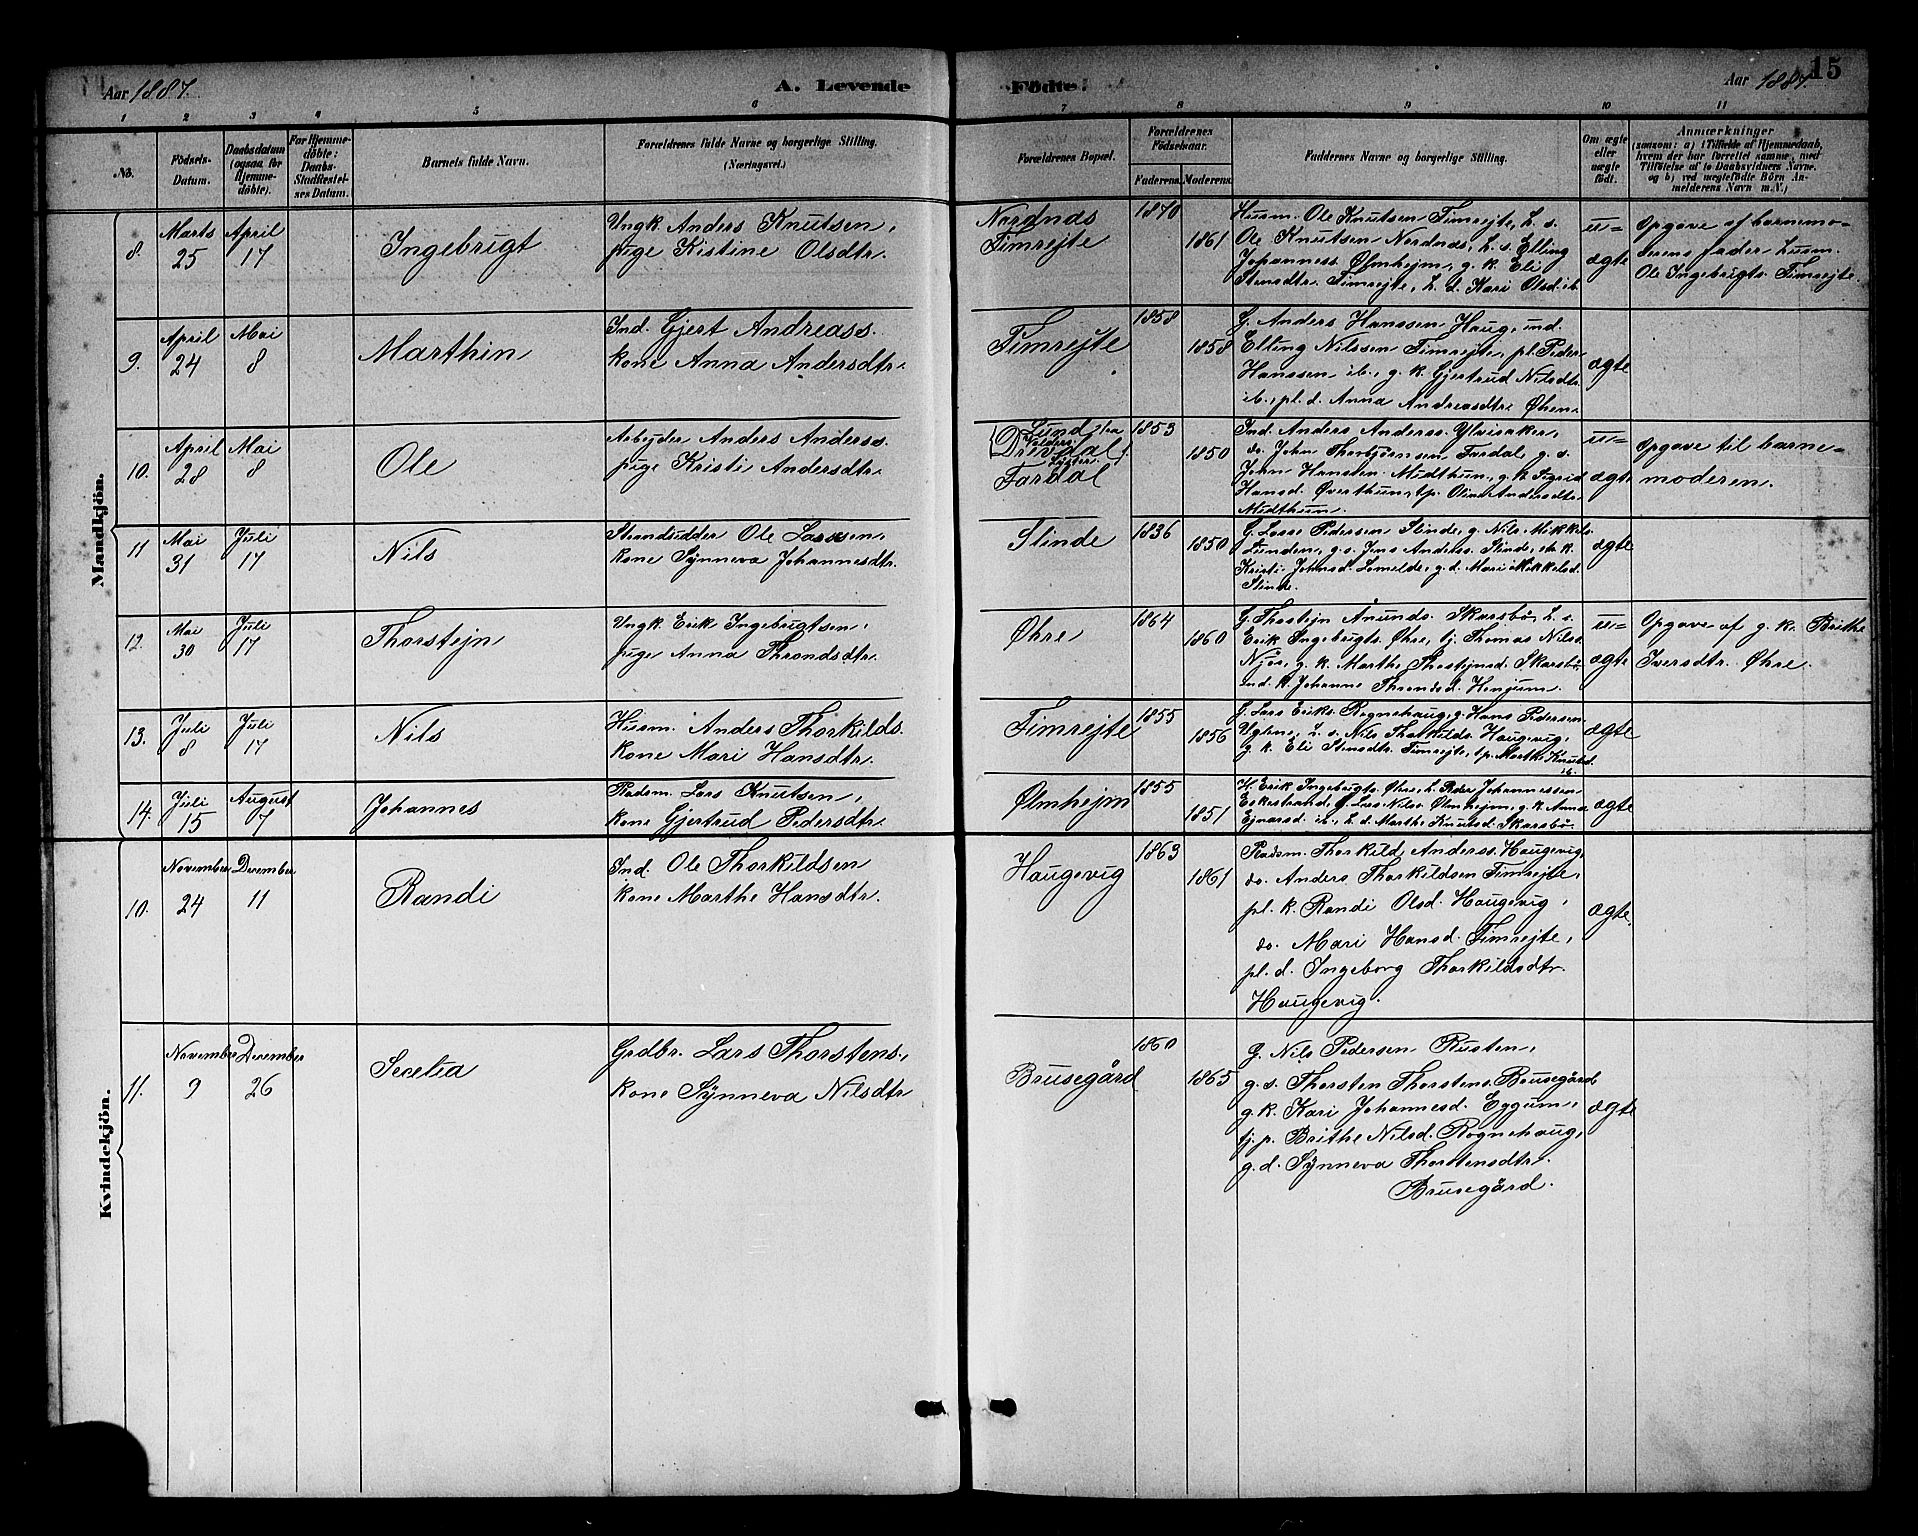 Aar 1887.
A. Levende
Födte.
Aar 1887.
15
1 2 3 4 5 6 7 8 9 10 11
No.
Födsels-
Datum.
Daabsdatum
(ogsaa for
Hjemme-
döbte).
For Hjemme-
döbte:
Daabs-
Stadfæstel-
ses Datum.
Barnets fulde Navn.
Forældrenes fulde Navne og borgerlige Stilling.
(Næringsvei.)
Forældrenes Bopæl.
Forældrenes
Födselsaar.
Faderens. Moderens.
Faddernes Navne og borgerlige Stilling.
Om ægte
eller
uægte
födt.
Anmærkninger
(saasom: a) i Tilfælde af Hjemmedaab,
hvem der har forrettet samme, med
Tilföielse af to Daabsvidners Navne.
og b) ved uægtefödte Börn An-
melderens Navn m.V.)
Mandkjön.
8.
Marts
25
April
17
Ingebrigt
Ungk. Anders Knutsen,
pige Kistine Olsdtr.
Nordnæs
Timrejte
1870
1861
Husm. Ole Knutsen Timrejte, h. s.
Ole Knutsen Nordnæs, h. s. Elling
Johanness. Ølmhejm, g. k. Eli
Stensdtr. Timrejte, h. d. Kari Olsd. ib.
u-
ægte
Opgave af barnemo-
derens fader husm.
Ole Ingebrigts. Timrejte.
9.
April
24
Mai
8
Marthin
Ind. Gjert Andreass.
kone Anna Andersdtr.
Timrejte
1858
1858
G. Anders Hanssen Haug, ind.
Elling Nilssen Timrejte, pl. Peder
Hanssen ib., g. k. Gjertrud Nilsdtr.
ib., pl. d. Anna Andreasdtr. Øhen.
ægte
10.
April
28
Mai
8
Ole
Arbejder Anders Anderss.
pige Kristi Andersdtr.
Lund fra
Valders.
Drevdal,
Fardal
1853
1850
Ind. Anders Anderss. Ylvisaker,
do. John Thorbjörnsen Fardal, g. s.
John Hanssen Midthun, g. k. Sigrid
Hansd. Øverthun, tp. Oline Andersdtr.
Midthun.
u-
ægte
Opgave til barne-
moderen.
11
Mai
31
Juli
17
Nils
Stenhudder Ole Larssen,
kone Synneva Johannesdtr.
Slinde
1836
1850
G. Lasse Pedersen Slinde, g. Nils Mikkels.
Lunden, g. s. Jens Anderss. Slinde, k.
Kristi Johnsd. Lomelde, g. d. Mari Mikkelsd.
Slinde.
ægte
12.
Mai
30
Juli
17
Thorstejn
Ungk. Erik Ingebrigtsen,
pige Anna Throndsdtr.
Øhre
1864
1860
G. Thostejn Anunds. Skarsbø, h. s.
Erik Ingebrigts. Øhre, tj. Thomas Nilss.
Njøs, g. k. Marthe Thostejnsd. Skarsbø,
ind. k. Johanne Thronsd. Henjum.
u-
ægte
Opgave af g. k. Brithe
Iversdtr. Øhre.
13.
Juli
8
Juli
17
Nils
Husm. Anders Thorkilds.
kone Mari Hansdtr.
Timrejte
1855
1856
G. Lars Eriks. Rognehaug, g. Hans Pedersen
Uglen, h. s. Nils Thorkilds. Haugevig,
g. k. Eli Stensdtr. Timrejte, tp. Marthe Knutsd.
ib.
ægte
14.
Juli
15
August
7
Johannes
Pladsm. Lars Knutsen,
kone Gjertrud Pedersdtr.
Ølmhejm
1855
1851
H. Erik Ingebrigts. Øhre, h. Peder Johannessen
Eskestrand, g. Lars Nilss. Ølmhejm, g. k. Anna
Ejnarsd. ib., h. d. Marthe Knutsd. Skarsbø.
ægte
Kvindekjön.
10.
November
24
December
11
Randi
Ind. Ole Thorkildsen
kone Marthe Hansdtr.
Haugevig
1863
1861
Pladsm. Thorkild Anderss. Haugevig,
do. Anders Thorkildsen Timrejte,
pl. k. Randi Olsd. Haugevig,
do. Mari Hansd. Timrejte,
pl. d. Ingeborg Thorkildsdtr.
Haugevig.
ægte.
11.
November
9
December
26
Secelia
Grdbr. Lars Thorstens.,
kone Synneva Nilsdtr.
Brusegård
1860
1865
G. Nils Pedersen Rusten,
g. s. Thorsten Thorstens. Brusegård
g. k. Kari Johannesd. Eggum,
tj. p. Brithe Nilsd. Rognehaug,
g. d. Synneva Thorstensdtr.
Brusegård.
ægte